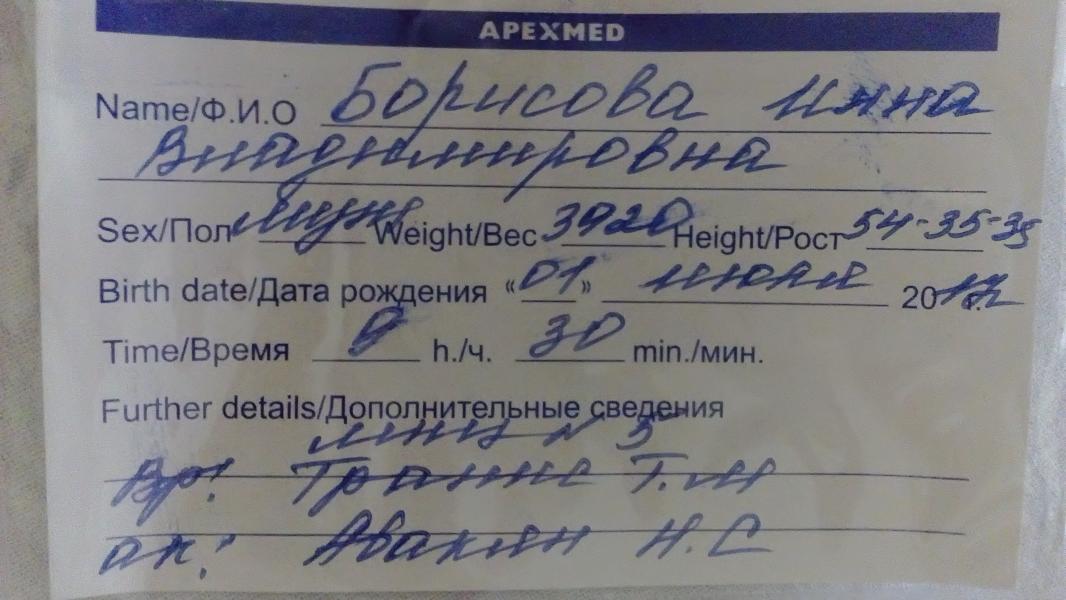 APEXMED
Name/Ф.И.О Борисова Инна
Владимировна
Sex/Пол муж Weight/Вес 3920 Height/Рост 54-35-35
Birth date/Дата рождения «01» июля 2017 г.
Time/Время 9 h./ч. 30 min./мин.
Further details/Дополнительные сведения
N 5
Вр: Т.М
ак: Авакян Н.С